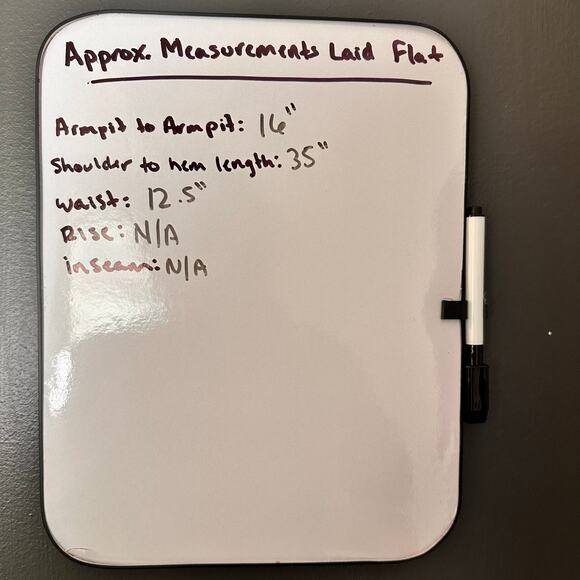 Approx. Measurements Laid Flat
Armpit to Armpit: 16"
Shoulder to hem length: 35"
waist: 12.5"
Rise: N/A
inseam: N/A